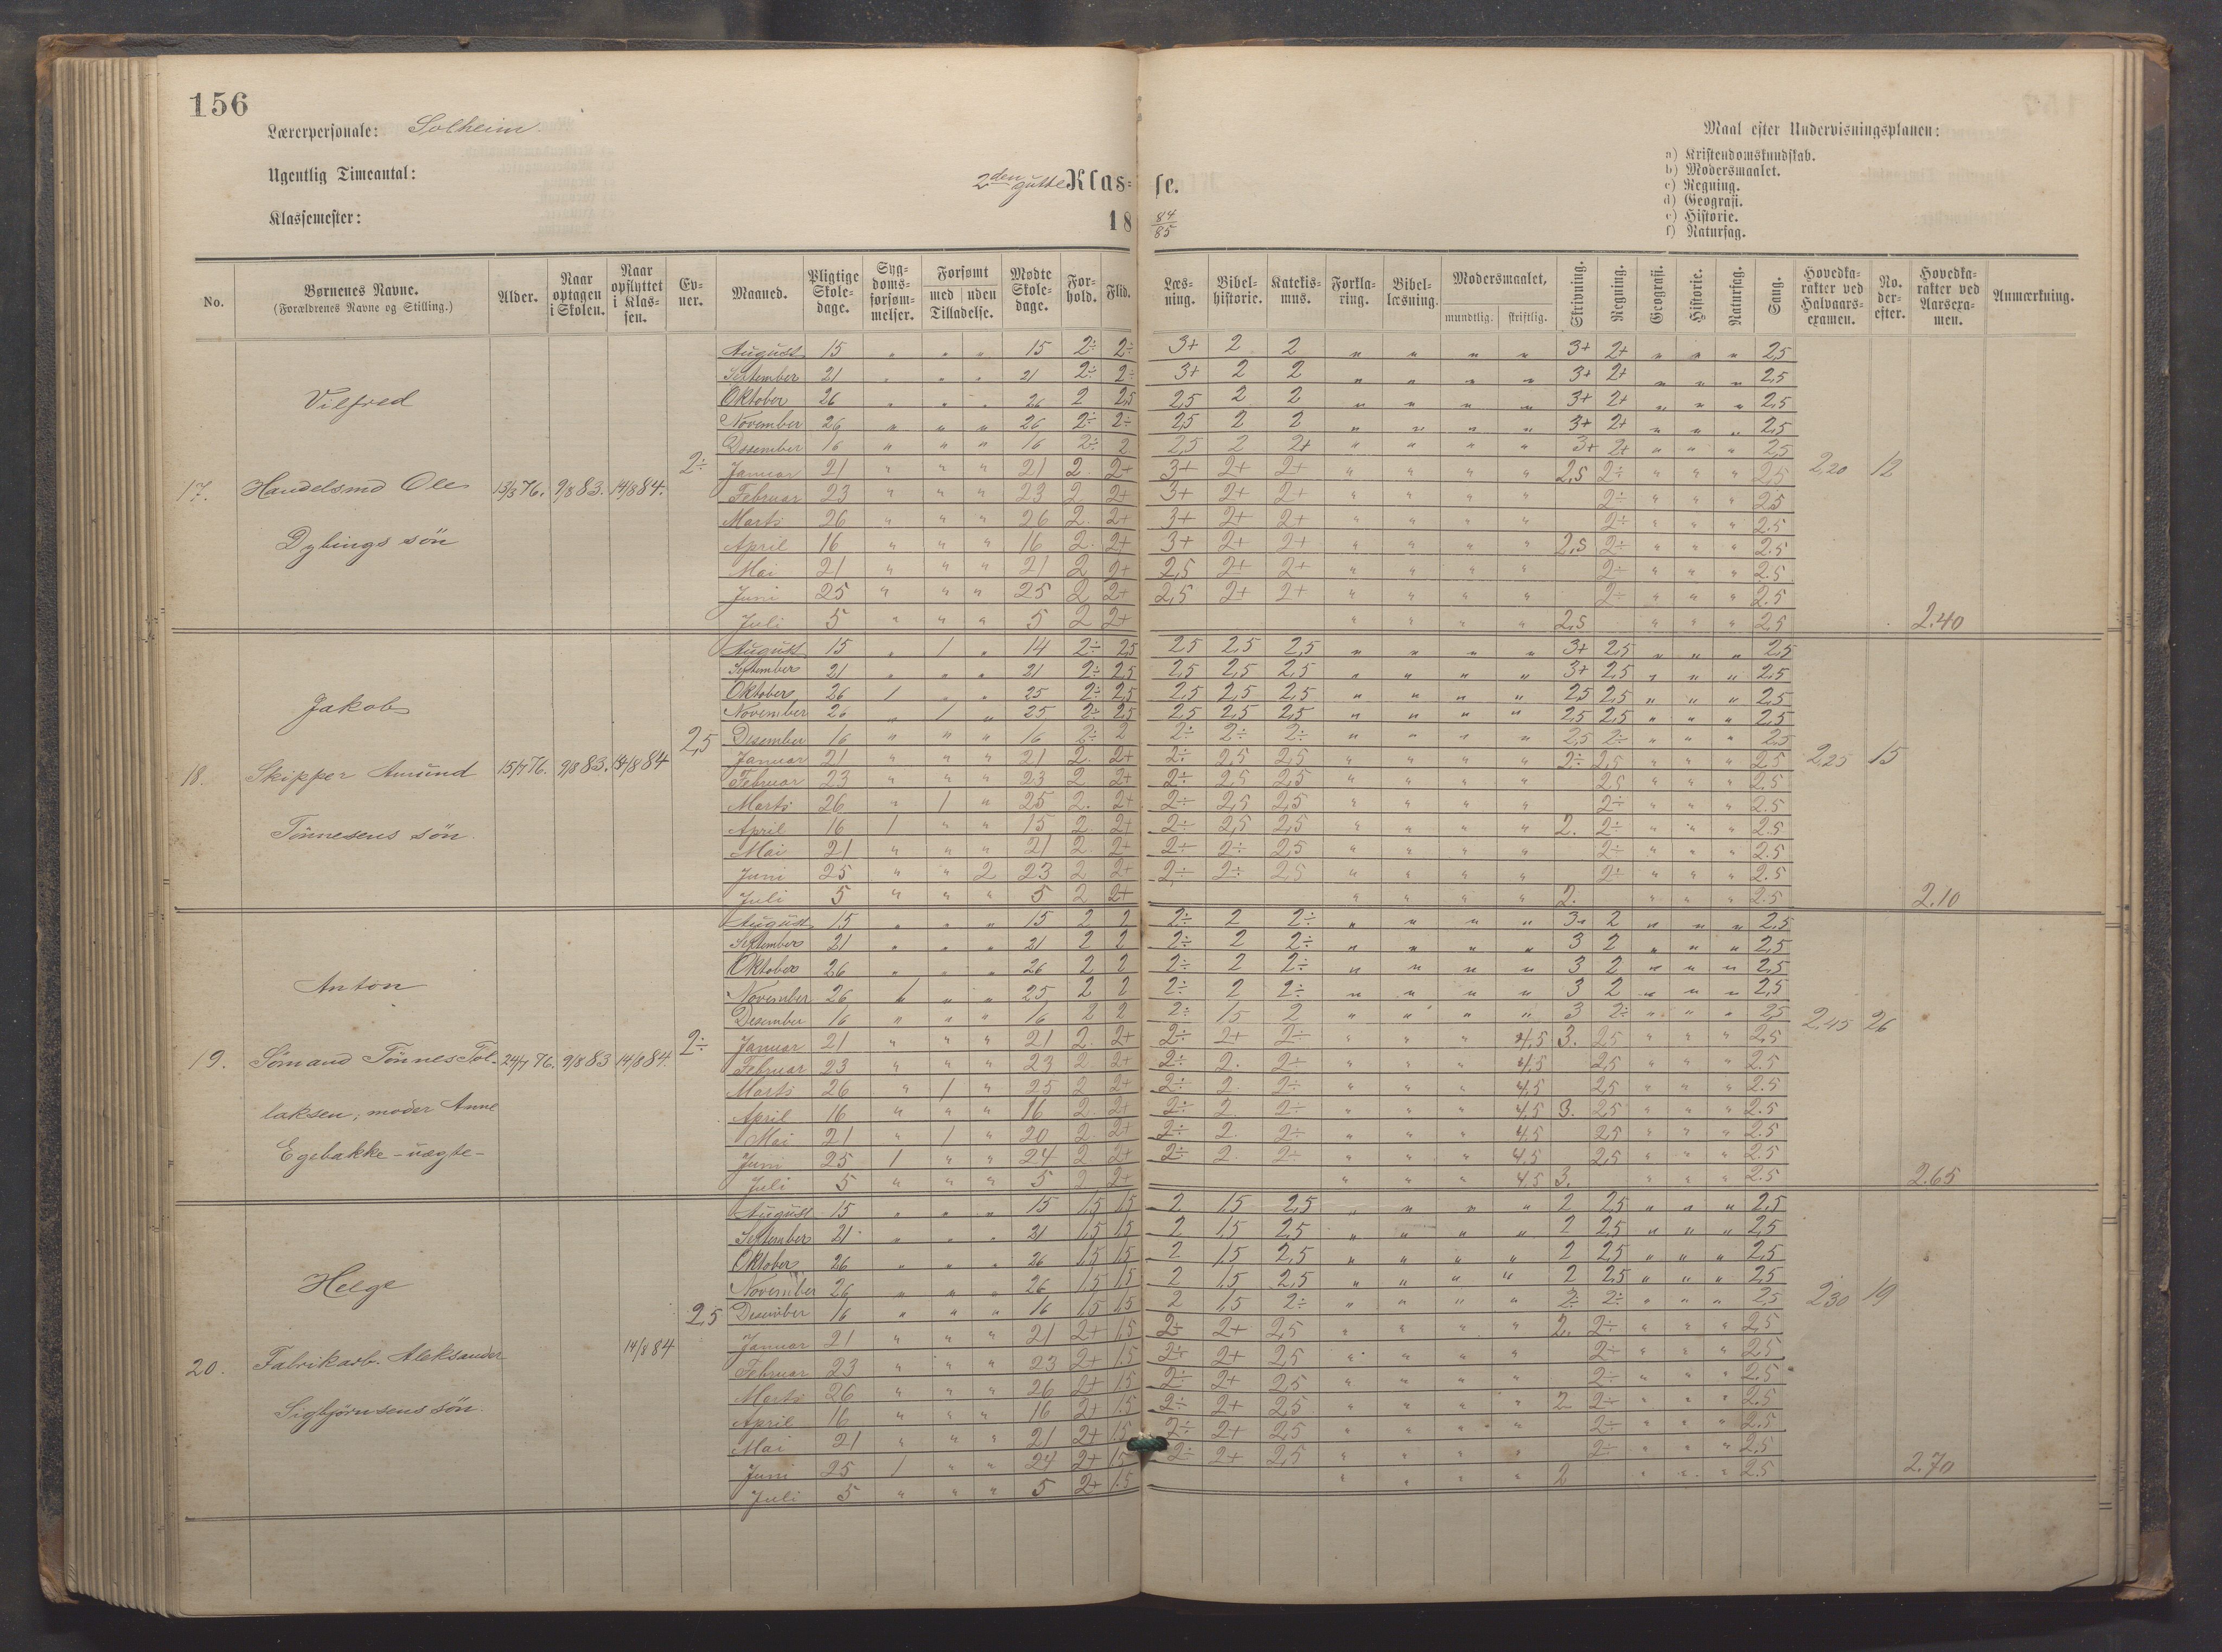 156
Lærerpersonale: Solheim.
Ugentlig Timeantal:
Klassemester:
2den gutte Klas= se.
18 84/85
Maal efter Undervisningsplanen:
a) Kristendomskundskab.
b) Modersmaalet.
c) Regning.
d) Geografi.
e) Historie.
f) Naturfag.
No. | Børnenes Navne. (Forældrenes Navne og Stilling.) | Alder. | Naar optagen i Skolen. | Naar opflyttet i Klassen. | Evner. | Maaned. | Pligtige Skoledage. | Sygdomsforsømmelser. | Forsømt med | uden Tilladelse. | Mødte Skoledage. | Forhold. | Flid. | Læsning. | Bibelhistorie. | Katekismus. | Forklaring. | Bibellæsning. | Modersmaalet, mundtlig. | skriftlig. | Skrivning. | Regning. | Geografi. | Historie. | Naturfag. | Sang. | Hovedkarakter ved Halvaarsexamen. | No. derefter. | Hovedkarakter ved Aarsexamen. | Anmærkning.
17. Vilfred
Handelsmd Ole
Dybings søn
13/3 76. 9/8 83. 14/8 84. 2÷
August 15 " " " 15 2÷ 2÷ 3+ 2 2 " " " " 3+ 2+ " " " 2,5
September 21 " " " 21 2÷ 2÷ 3+ 2 2 " " " " 3+ 2+ " " " 2,5
Oktober 26 " " " 26 2 2,5 2,5 2 2 " " " " 3+ 2+ " " " 2,5
November 26 " " " 26 2÷ 2÷ 2,5 2 2 " " " " 3+ 2+ " " " 2,5
Desember 16 " " " 16 2÷ 2 2,5 2 2+ " " " " 3+ 2+ " " " 2,5
Januar 21 " " " 21 2. 2+ 3+ 2+ 2+ " " " " 2,5 2÷ " " " 2,5 2,20 12
Februar 23 " " " 23 2 2+ 3+ 2+ 2+ " " " " 2÷ " " " 2,5
Marts 26 " " " 26 2. 2+ 3+ 2+ 2+ " " " " 2÷ " " " 2.5
April 16 " " " 16 2. 2+ 3+ 2+ 2+ " " " " 2,5 2÷ " " " 2.5
Mai 21 " " " 21 2 2+ 2,5 2+ 2+ " " " " 2÷ " " " 2.5
Juni 25 " " " 25 2 2+ 2,5 2+ 2+ " " " " 2÷ " " " 2.5
Juli 5 " " " 5 2 2+ " " " " 2,5 " " " 2,5 2.40
18. Jakob
Skipper Amund
Tønnesens søn.
15/7 76. 9/8 83. 14/8 84 2,5
August 15 " 1 " 14 2÷ 2,5 2,5 2,5 2,5 " " " " 3+ 2,5 " " " 2,5
September 21 " " " 21 2÷ 2,5 2,5 2,5 2,5 " " " " 3+ 2,5 " " " 2,5
Oktober 26 1 " " 25 2÷ 2,5 2,5 2,5 2,5 " " " " 2,5 2,5 " " " 2,5
November 26 " 1 " 25 2÷ 2,5 2,5 2,5 2,5 " " " " 2,5 2,5 " " " 2,5
Desember 16 " " " 16 2÷ 2 2÷ 2÷ 2÷ " " " " 2,5 2÷ " " " 2,5
Januar 21 " " " 21 2. 2+ 2÷ 2,5 2,5 " " " " 2÷ 2,5 " " " 2,5 2,25 15
Februar 23 " " " 23 2. 2+ 2÷ 2,5 2,5 " " " " 2,5 " " " 2,5
Marts 26 " 1 " 25 2. 2+ 2÷ 2,5 2,5 " " " " 2÷ " " " 2.5
April 16 1 " " 15 2 2+ 2÷ 2,5 2,5 " " " " 2. 2÷ " " " 2.5
Mai 21 " " " 21 2 2+ 2÷ 2÷ 2,5 " " " " 2÷ " " " 2.5
Juni 25 " " 2 23 2 2+ 2÷ 2÷ 2,5 " " " " 2÷ " " " 2.5
Juli 5 " " " 5 2 2+ " " " " 2. " " " 2.5 2.10
19. Anton
Sømand Tønnes Tol-
laksen, moder Anne
Egebakke - uægte -
24/7 76. 9/8 83 14/8 84. 2÷
August 15 " " " 15 2 2 2÷ 2 2÷ " " " " 3 2 " " " 2,5
September 21 " " " 21 2 2 2÷ 2 2÷ " " " " 3 2 " " " 2,5
Oktober 26 " " " 26 2 2 2÷ 2 2÷ " " " " 3 2 " " " 2,5
November 26 1 " " 25 2 2 2÷ 2 2÷ " " " " 3 2 " " " 2,5
Desember 16 " " " 16 2 2 2÷ 1,5 2 " " " " 3 2÷ " " " 2,5 2,45 26
Januar 21 " " " 21 2. 2+ 2÷ 2+ 2÷ " " " 4,5 3. 2,5 " " " 2,5
Februar 23 " " " 23 2. 2+ 2÷ 2. 2÷ " " " 4,5 2,5 " " " 2.5
Marts 26 " 1 " 25 2 2+ 2÷ 2 2÷ " " " 4,5 2,5 " " " 2.5
April 16 " " " 16 2. 2+ 2÷ 2 2÷ " " " 4,5 3. 2,5 " " " 2.5
Mai 21 " 1 " 20 2. 2+ 2÷ 2. 2÷ " " " 4,5 2,5 " " " 2.5
Juni 25 1 " " 24 2 2+ 2÷ 2. 2÷ " " " 4,5 2,5 " " " 2.5
Juli 5 " " " 5 2 2+ " " " 4,5 3. " " " 2.5 2.65
20. Helge
Fabrikarb. Aleksander
Sigbjørnsens søn.
14/8 84 2,5
August 15 " " " 15 1,5 1,5 2 1,5 2,5 " " " " 2 2,5 " " " 2,5
September 21 " " " 21 1,5 1,5 2 1,5 2,5 " " " " 2 2,5 " " " 2,5
Oktober 26 " " " 26 1,5 1,5 2 1,5 2,5 " " " " 2 2,5 " " " 2,5
November 26 " " " 26 1,5 1,5 2 1,5 2,5 " " " " 2 2,5 " " " 2,5
Desember 16 " " " 16 1,5 1,5 2 1,5 2÷ " " " " 2÷ 2÷ " " " 2,5 2,30 19
Januar 21 " " " 21 2+ 1,5 2÷ 2+ 2,5 " " " " 2. 2÷ " " " 2,5
Februar 23 " " " 23 2+ 1.5 2÷ 2+ 2,5 " " " " 2÷ " " " 2,5
Marts 26 " " " 26 2+ 1.5 2÷ 2+ 2,5 " " " " 2÷ " " " 2,5
April 16 " " " 16 2+ 1.5 2÷ 2+ 2,5 " " " " 2 2÷ " " " 2.5
Mai 21 " " " 21 2+ 1.5 2÷ 2+ 2,5 " " " " 2÷ " " " 2.5
Juni 25 1 " " 24 2+ 1.5 2÷ 2+ 2,5 " " " " 2÷ " " " 2,5
Juli 5 " " " 5 2+ 1.5 " " " " 2 " " " 2.5 2.70